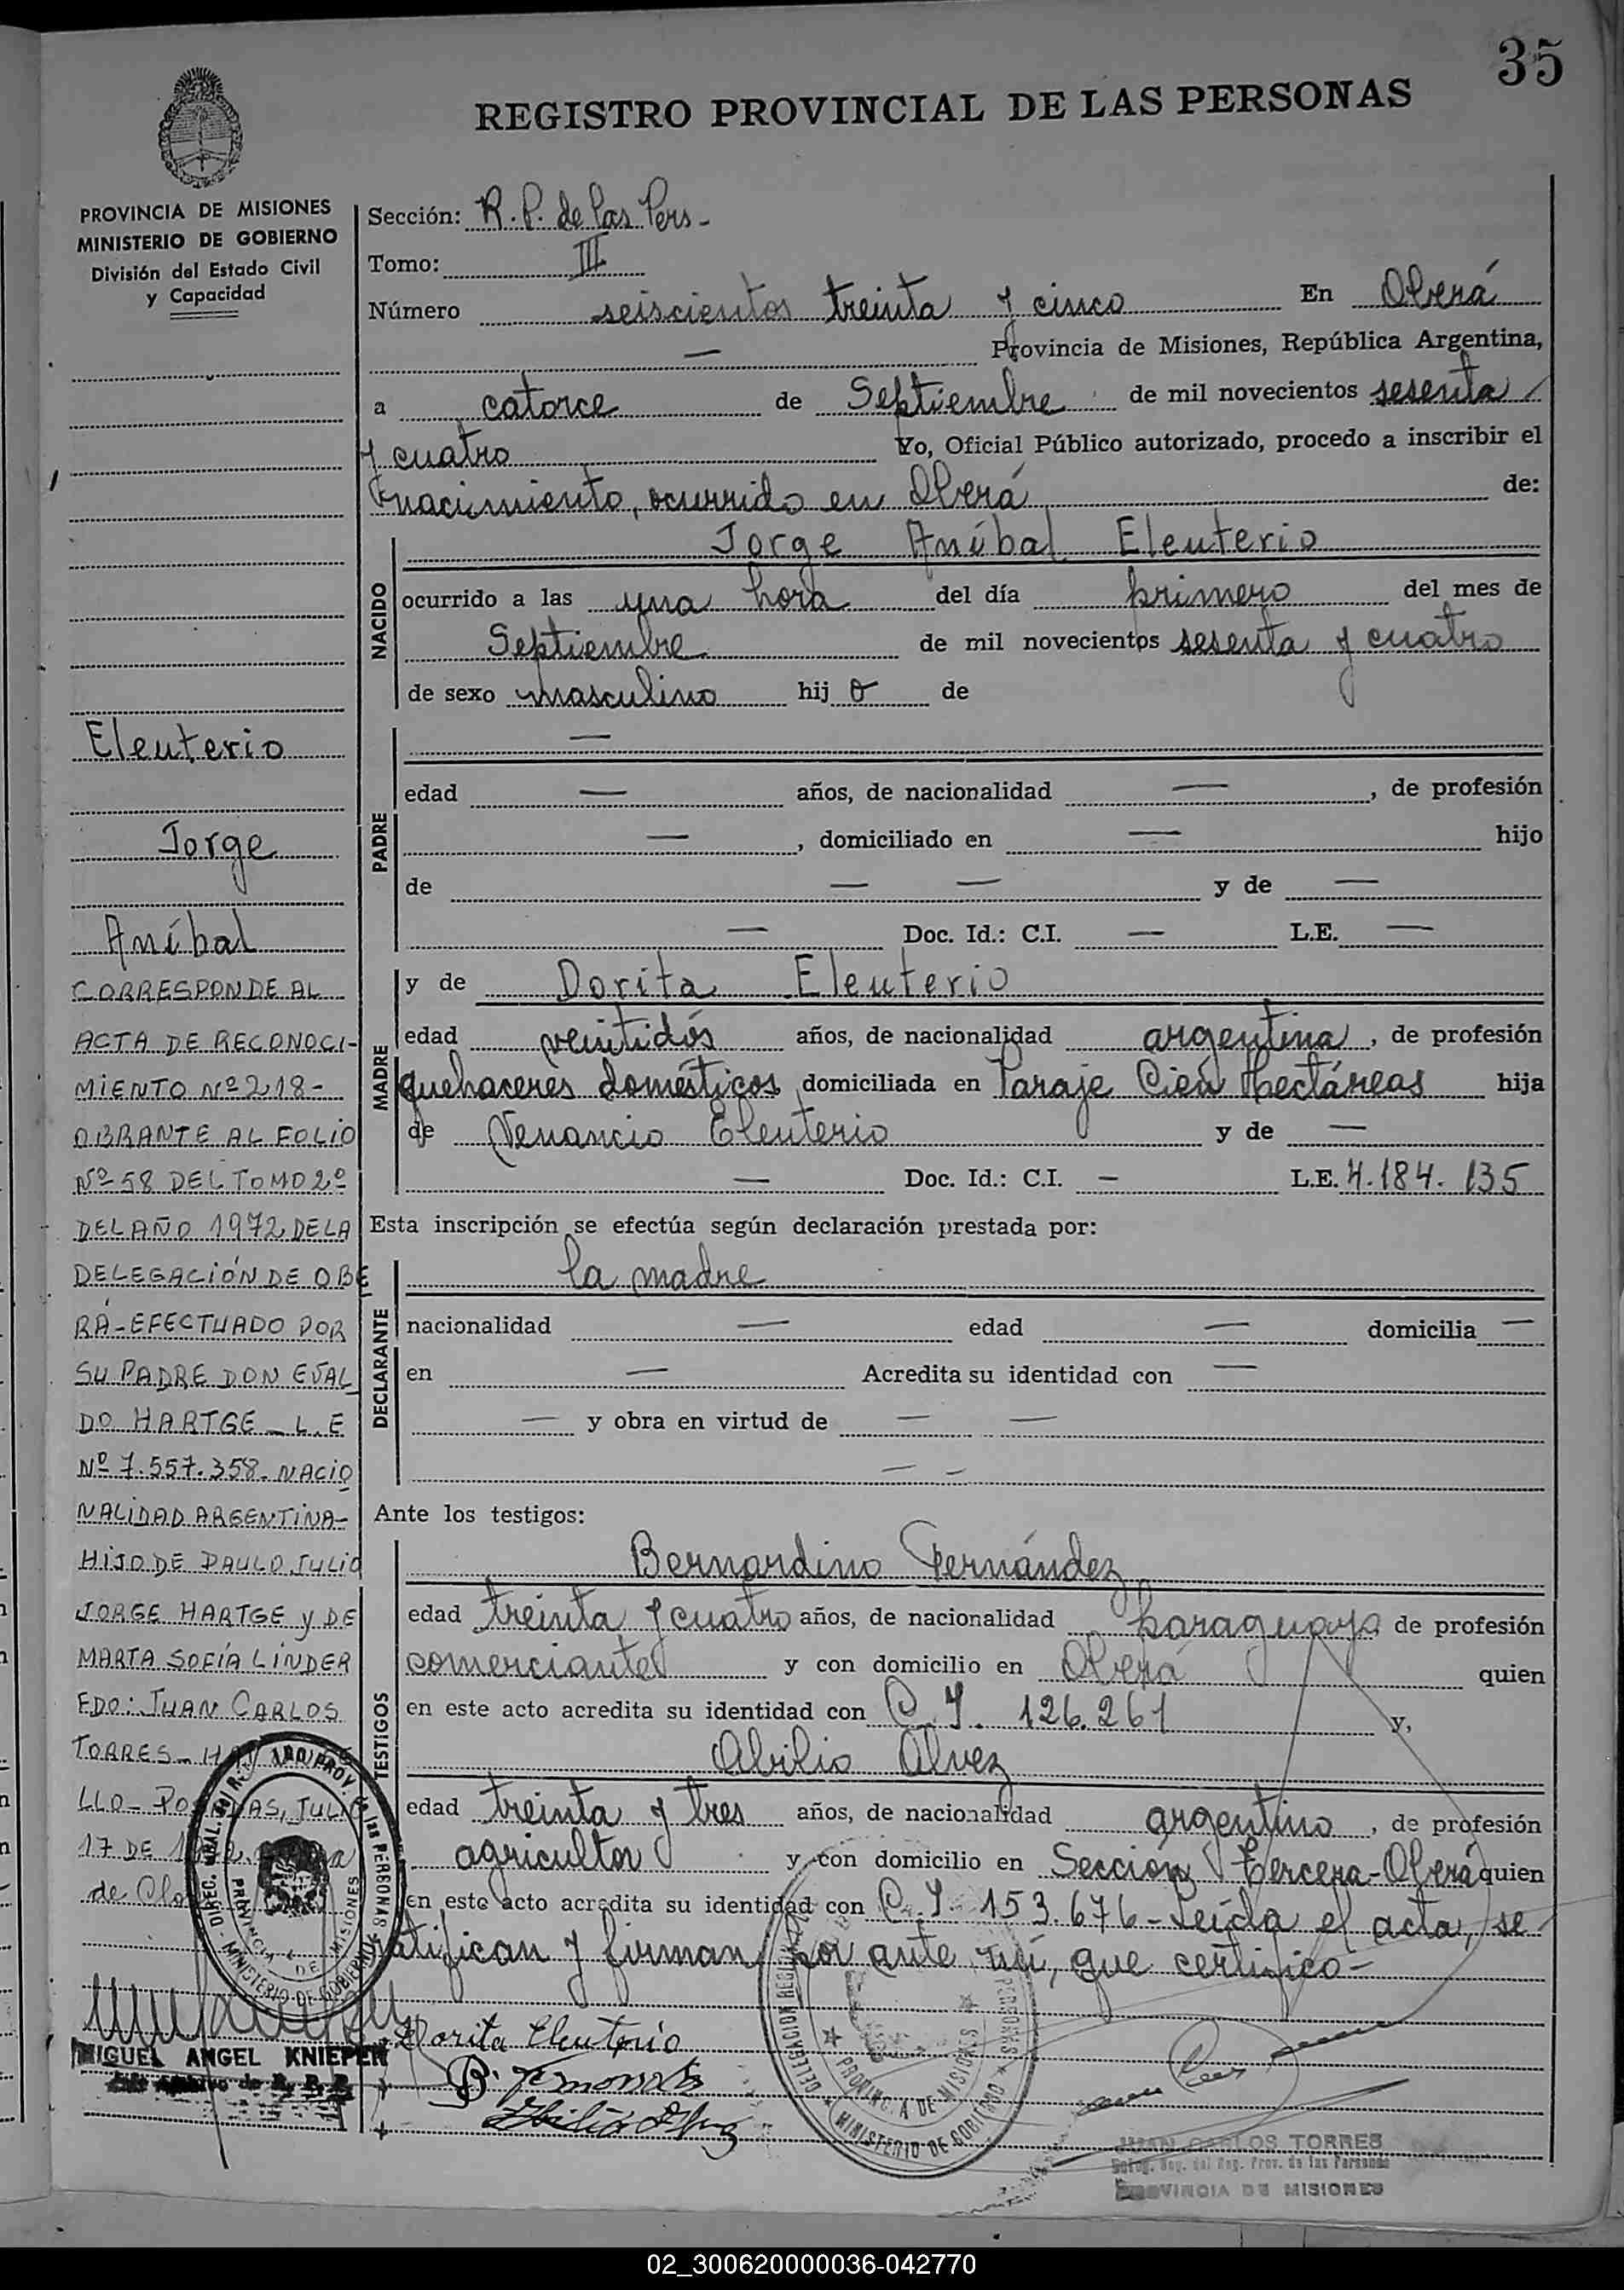 35
REGISTRO PROVINCIAL DE LAS PERSONAS
PROVINCIA DE MISIONES
MINISTERIO DE GOBIERNO
División del Estado Civil
y Capacidad
Eleuterio
Jorge
Aníbal
CORRESPONDE AL
ACTA DE RECONOCI-
MIENTO Nº 218-
OBRANTE AL FOLIO
Nº 58 DEL TOMO 2º
DEL AÑO 1972 DE LA
DELEGACIÓN DE OBE
RÁ-EFECTUADO POR
SU PADRE DON EVAL
DO HARTGE - L.E
Nº 7.557.358- NACIO
NALIDAD ARGENTINA-
HIJO DE PAULO JULIO
JORGE HARTGE y DE
MARTA SOFÍA LINDER
FDO: JUAN CARLOS
TORRES-
LLO- JULIO
17 DE
de
DIREC. GRAL. DEL REG. PROV. de las PERSONAS
MINISTERIO DE GOBIERNO
PROVINCIA DE MISIONES
MIGUEL ANGEL KNIEPER
Sección: R.P. de las Pers-
Tomo: III
Número seiscientos treinta y cinco En Oberá
— Provincia de Misiones, República Argentina,
a catorce de Septiembre de mil novecientos sesenta
y cuatro Yo, Oficial Público autorizado, procedo a inscribir el
nacimiento, ocurrido en Oberá de:
NACIDO
Jorge Aníbal Eleuterio
ocurrido a las una hora del día primero del mes de
Septiembre de mil novecientos sesenta y cuatro
de sexo masculino hij o de
PADRE
—
edad — años, de nacionalidad —, de profesión
—, domiciliado en — hijo
de — — y de —
— Doc. Id.: C.I. — L.E. —
MADRE
y de Dorita Eleuterio
edad veintidós años, de nacionalidad argentina, de profesión
quehaceres domésticos domiciliada en Paraje Cien Hectáreas hija
de Venancio Eleuterio y de —
— Doc. Id.: C.I. — L.E. 4.184.135
Esta inscripción se efectúa según declaración prestada por:
DECLARANTE
la madre
nacionalidad — edad — domicilia —
en — Acredita su identidad con —
— y obra en virtud de — —
— —
Ante los testigos:
TESTIGOS
Bernardino Fernández
edad treinta y cuatro años, de nacionalidad paraguaya de profesión
comerciante y con domicilio en Oberá quien
en este acto acredita su identidad con C.I. 126.261 y,
Abilio Alvez
edad treinta y tres años, de nacionalidad argentino, de profesión
agricultor y con domicilio en Sección Tercera-Oberá quien
en este acto acredita su identidad con C.I. 153.676- Leída el acta, se
ratifican y firman por ante mí, que certifico-
Dorita Eleuterio
DELEGACION
MINISTERIO DE GOBIERNO
PROVINCIA DE MISIONES
JUAN CARLOS TORRES
Deleg. Reg. del Reg. Prov. de las Personas
PROVINCIA DE MISIONES
02_300620000036-042770